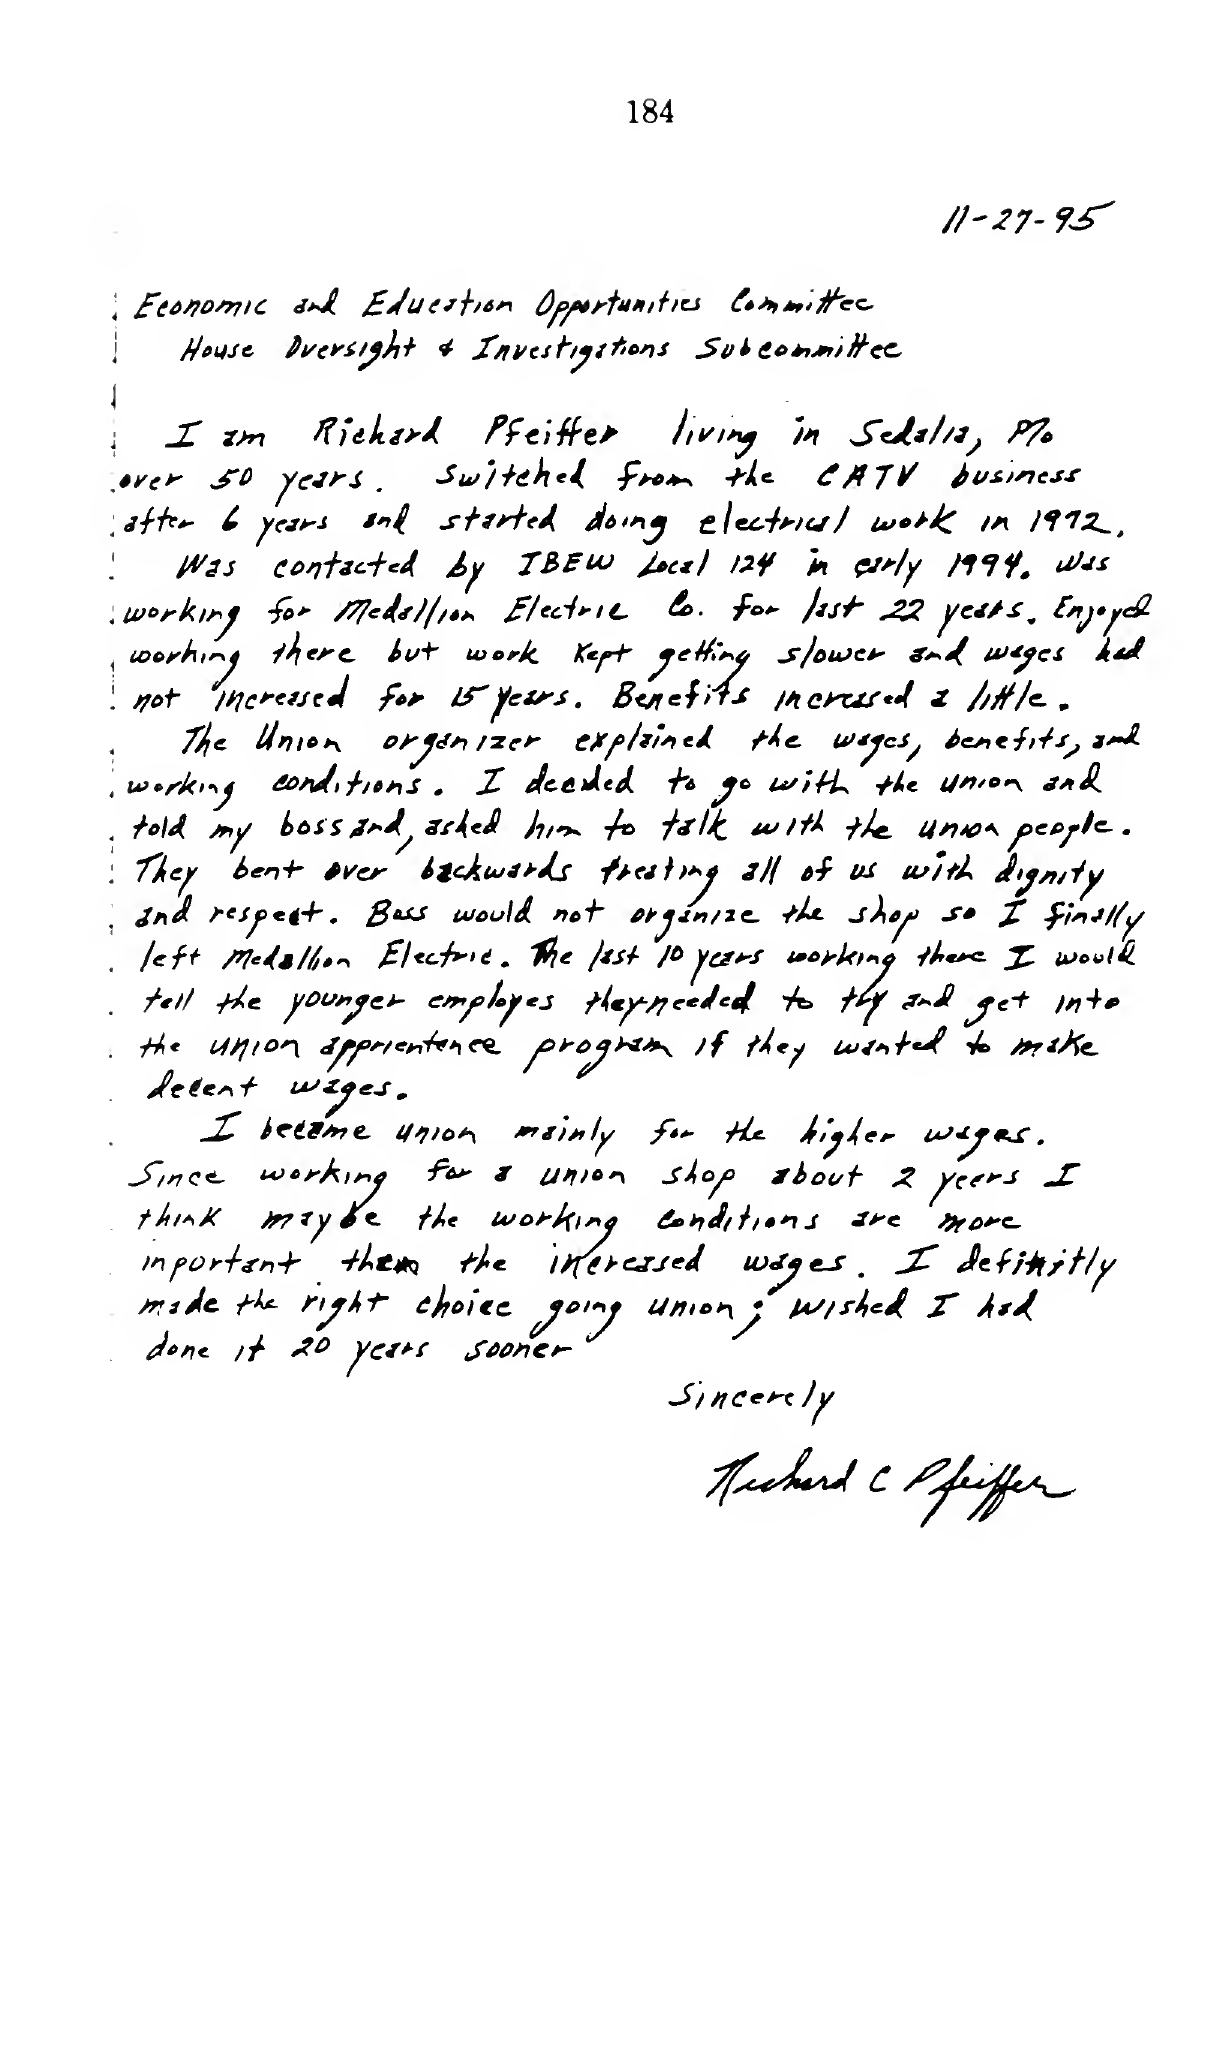 184
11-27-95
Economic and Education Opportunities Committee
House Oversight & Investigations Subcommittee
I am Richard Pfeiffer living in Sedalia, Mo
over 50 years. Switched from the CATV business
after 6 years and started doing electrical work in 1972.
Was contacted by IBEW Local 124 in early 1994. Was
working for Medallion Electric Co. for last 22 years. Enjoyed
working there but work kept getting slower and wages had
not increased for 15 years. Benefits increased a little.
The Union organizer explained the wages, benefits, and
working conditions. I decided to go with the union and
told my boss and, asked him to talk with the union people.
They bent over backwards treating all of us with dignity
and respect. Boss would not organize the shop so I finally
left Medallion Electric. The last 10 years working there I would
tell the younger employes they needed to try and get into
the union apprientence program if they wanted to make
decent wages.
I became union mainly for the higher wages.
Since working for a union shop about 2 years I
think maybe the working conditions are more
inportant them the increased wages. I definitly
made the right choice going union; wished I had
done it 20 years sooner
Sincerely
Richard C Pfeiffer